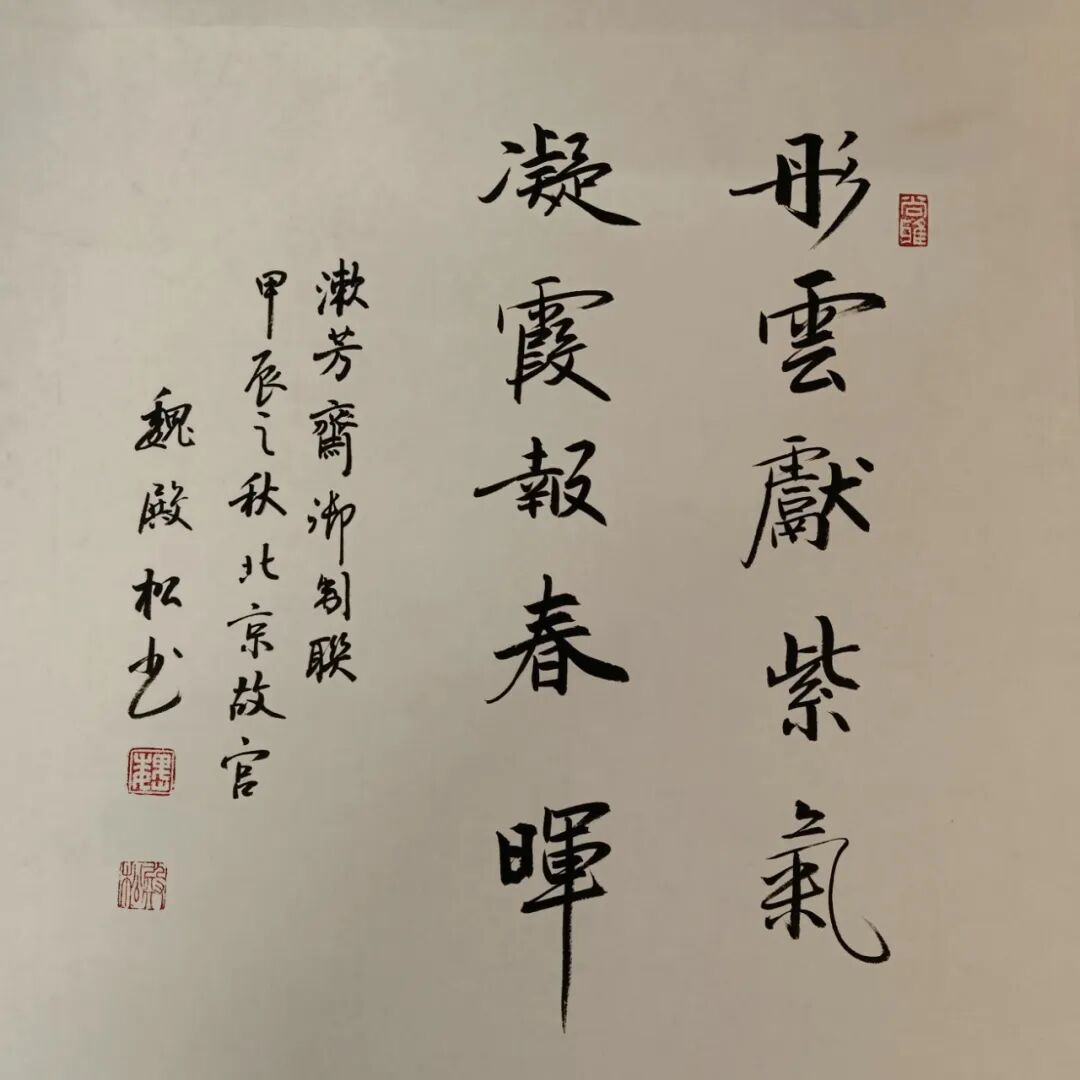 彤雲獻紫氣
凝霞報春暉
漱芳齋御制聯
甲辰之秋北京故宫
魏殿松书
魏
殿松